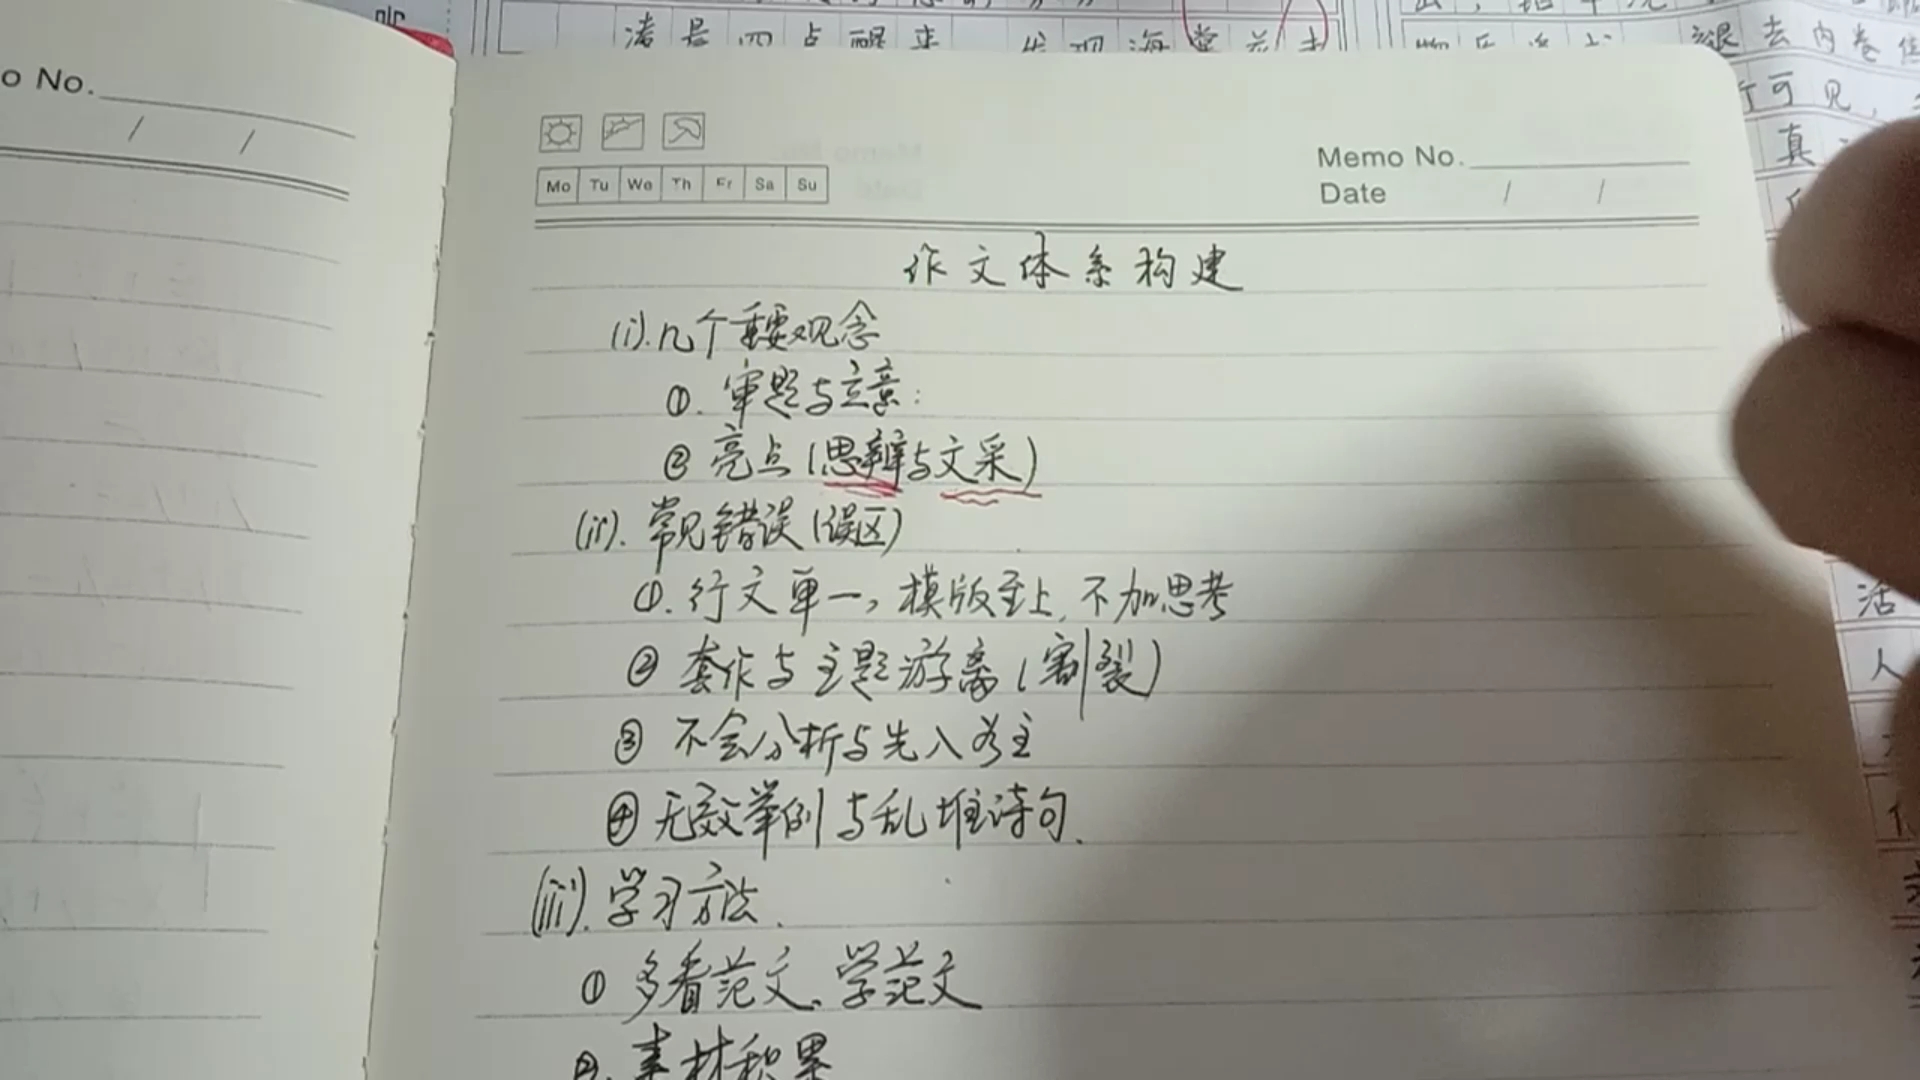 o No.
/ /
渚是四点醒来 发现海棠花未
退去内卷
行可见,
真
Mo Tu We Th Fr Sa Su
Memo No.
Date / /
作文体系构建
(i).几个重要观念
①.审题与立意:
② 亮点(思辨与文采)
(ii).常见错误(误区)
①.行文单一,模版至上,不加思考
② 套作与主题游离(割裂)
③ 不会分析与先入为主
④ 无效举例与乱堆诗句.
(iii).学习方法.
① 多看范文、学范文
②.素材积累
活
人